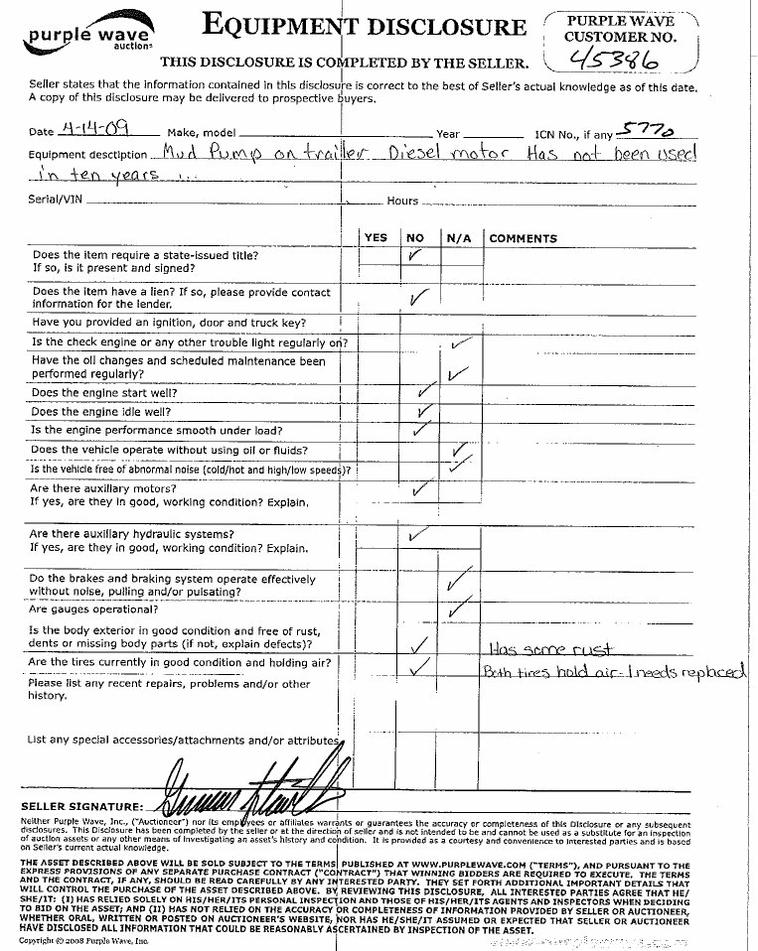 purple wave
auction®
EQUIPMENT DISCLOSURE
THIS DISCLOSURE IS COMPLETED BY THE SELLER.
PURPLE WAVE
CUSTOMER NO.
45386
Seller states that the information contained in this disclosure is correct to the best of Seller's actual knowledge as of this date.
A copy of this disclosure may be delivered to prospective buyers.
Date 4-14-09 Make, model Year ICN No., if any 5770
Equipment description Mud Pump on trailer Diesel motor Has not been used
in ten years ...
Serial/VIN Hours
YES NO N/A COMMENTS
Does the item require a state-issued title? ✓
If so, is it present and signed?
Does the item have a lien? If so, please provide contact
information for the lender. ✓
Have you provided an ignition, door and truck key?
Is the check engine or any other trouble light regularly on? ✓
Have the oil changes and scheduled maintenance been
performed regularly? ✓
Does the engine start well? ✓
Does the engine idle well? ✓
Is the engine performance smooth under load? ✓
Does the vehicle operate without using oil or fluids? ✓
Is the vehicle free of abnormal noise (cold/hot and high/low speeds)? ✓
Are there auxiliary motors? ✓
If yes, are they in good, working condition? Explain.
Are there auxiliary hydraulic systems? ✓
If yes, are they in good, working condition? Explain.
Do the brakes and braking system operate effectively
without noise, pulling and/or pulsating? ✓
Are gauges operational? ✓
Is the body exterior in good condition and free of rust,
dents or missing body parts (if not, explain defects)? ✓ Has some rust
Are the tires currently in good condition and holding air? ✓ Both tires hold air-1 needs replaced
Please list any recent repairs, problems and/or other
history.
List any special accessories/attachments and/or attributes
SELLER SIGNATURE:
Neither Purple Wave, Inc., ("Auctioneer") nor its employees or affiliates warrants or guarantees the accuracy or completeness of this Disclosure or any subsequent
disclosures. This Disclosure has been completed by the seller or at the direction of seller and is not intended to be and cannot be used as a substitute for an inspection
of auction assets or any other means of investigating an asset's history and condition. It is provided as a courtesy and convenience to interested parties and is based
on Seller's current actual knowledge.
THE ASSET DESCRIBED ABOVE WILL BE SOLD SUBJECT TO THE TERMS PUBLISHED AT WWW.PURPLEWAVE.COM ("TERMS"), AND PURSUANT TO THE
EXPRESS PROVISIONS OF ANY SEPARATE PURCHASE CONTRACT ("CONTRACT") THAT WINNING BIDDERS ARE REQUIRED TO EXECUTE. THE TERMS
AND THE CONTRACT, IF ANY, SHOULD BE READ CAREFULLY BY ANY INTERESTED PARTY. THEY SET FORTH ADDITIONAL IMPORTANT DETAILS THAT
WILL CONTROL THE PURCHASE OF THE ASSET DESCRIBED ABOVE. BY REVIEWING THIS DISCLOSURE, ALL INTERESTED PARTIES AGREE THAT HE/
SHE/IT: (I) HAS RELIED SOLELY ON HIS/HER/ITS PERSONAL INSPECTION AND THOSE OF HIS/HER/ITS AGENTS AND INSPECTORS WHEN DECIDING
TO BID ON THE ASSET; AND (II) HAS NOT RELIED ON THE ACCURACY OR COMPLETENESS OF INFORMATION PROVIDED BY SELLER OR AUCTIONEER,
WHETHER ORAL, WRITTEN OR POSTED ON AUCTIONEER'S WEBSITE, NOR HAS HE/SHE/IT ASSUMED OR EXPECTED THAT SELLER OR AUCTIONEER
HAVE DISCLOSED ALL INFORMATION THAT COULD BE REASONABLY ASCERTAINED BY INSPECTION OF THE ASSET.
Copyright © 2008 Purple Wave, Inc.